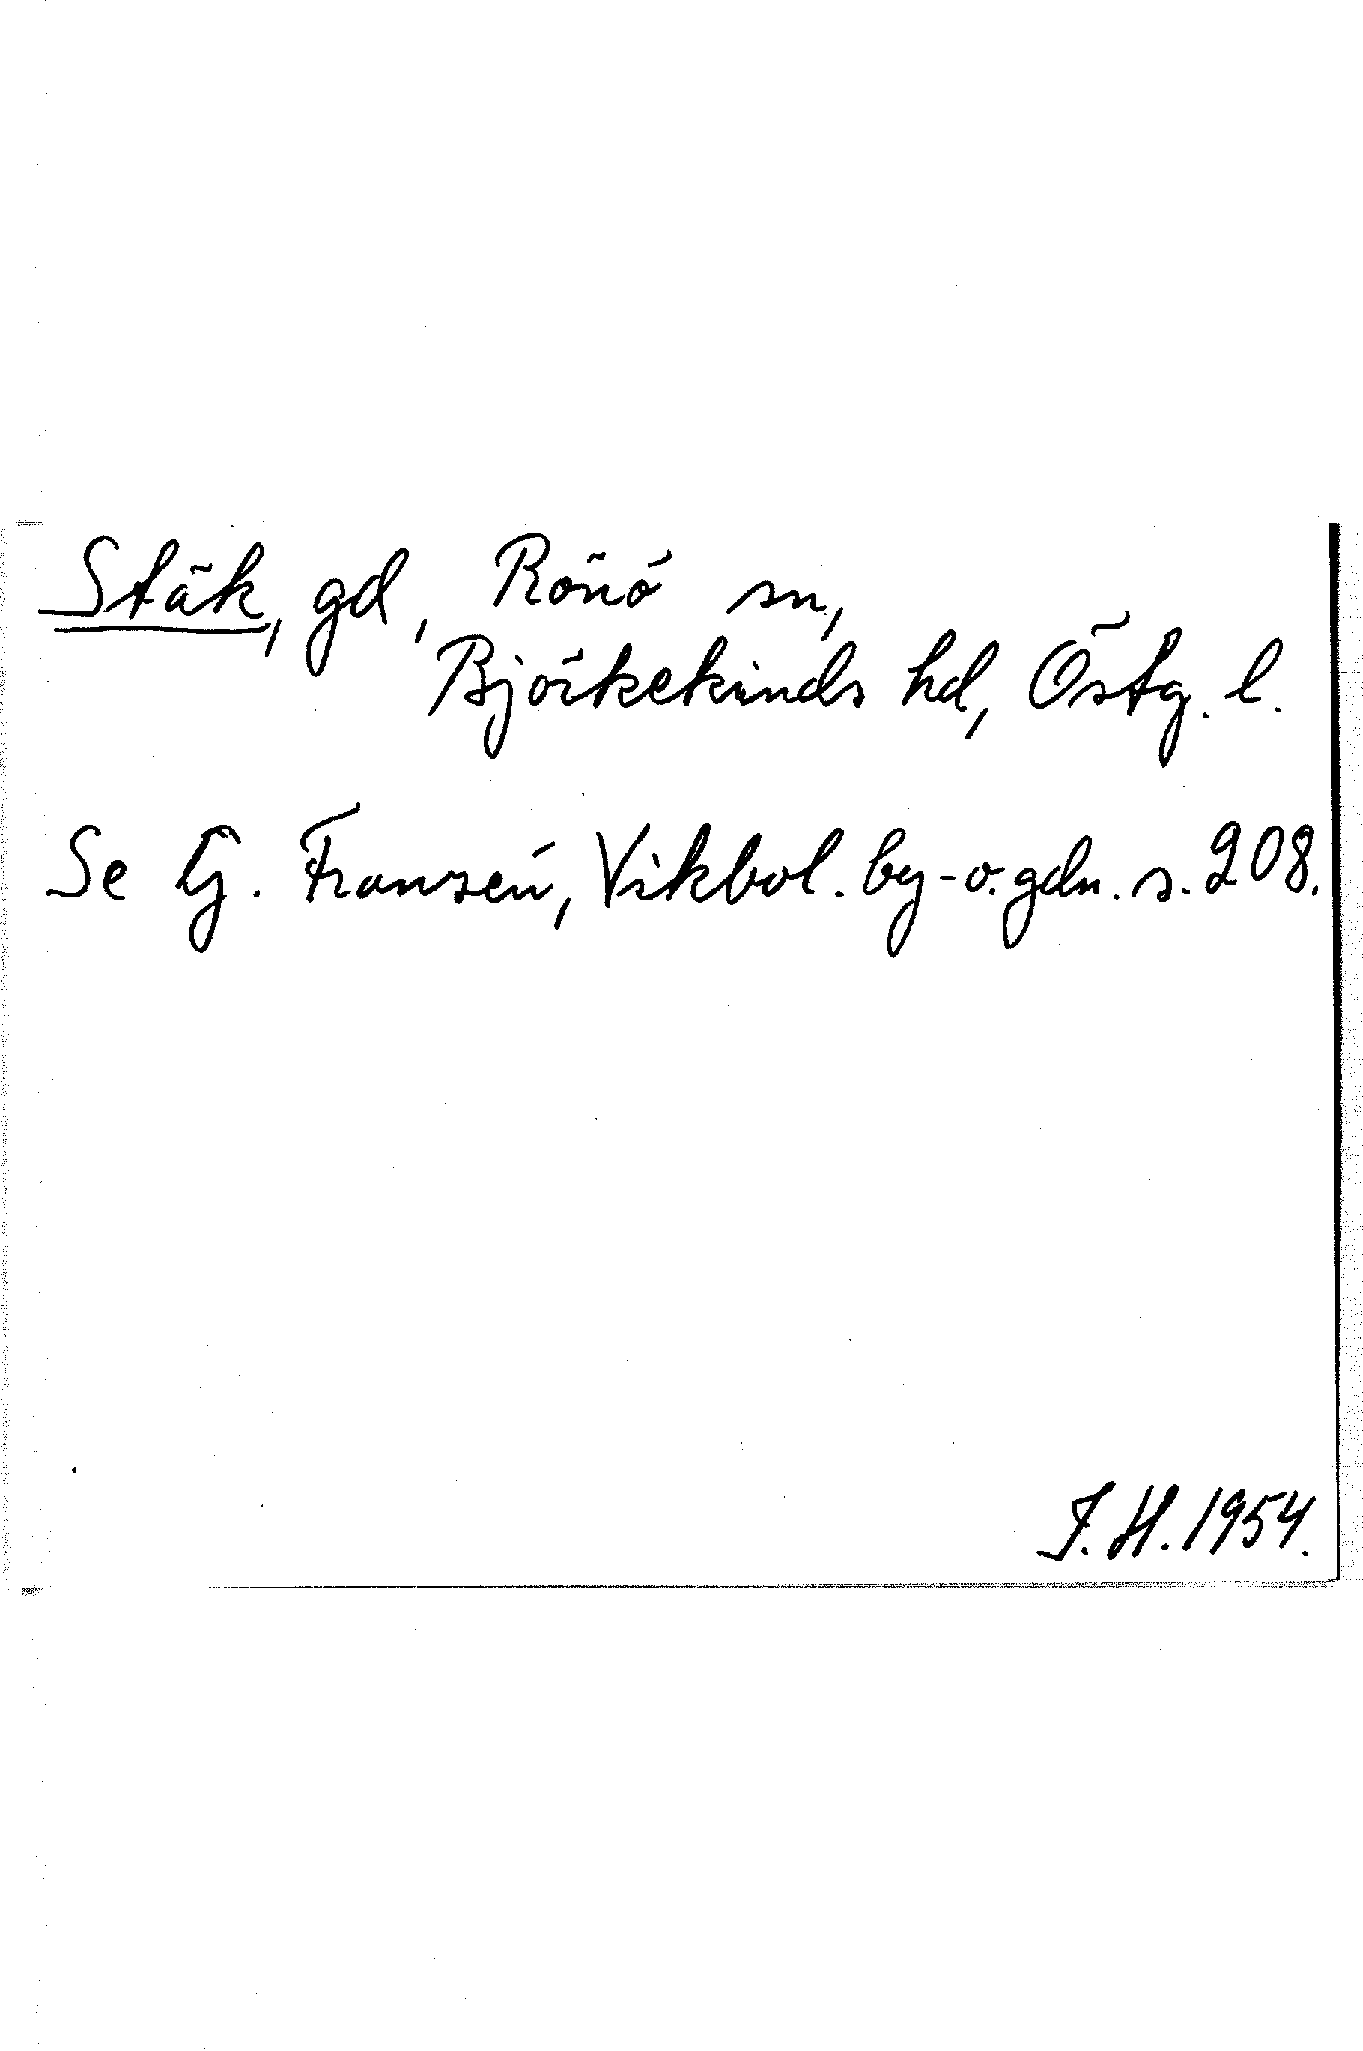 Stäk, gd, Rönö sn,
Björkekinds hd, Östg. l.
Se G. Franzén, Vikbol. by- o. gdn. s. 208.
I. H. 1954.